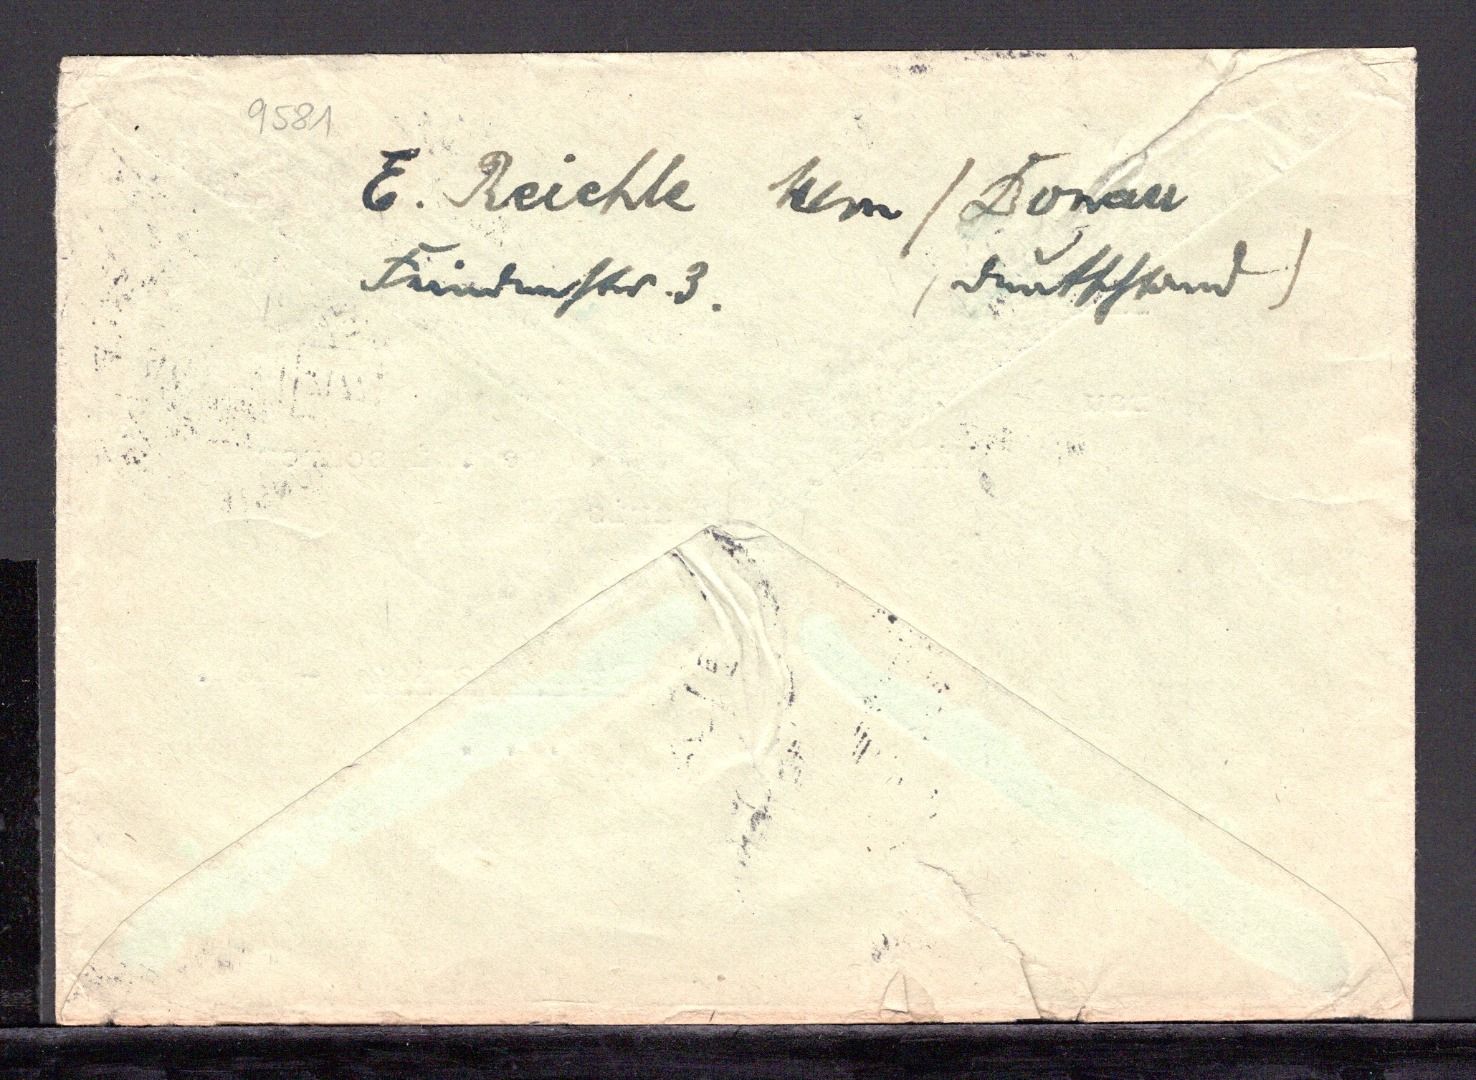 9581
E. Reichle Ulm / Donau
Friedenstr. 3. (Deutschland)